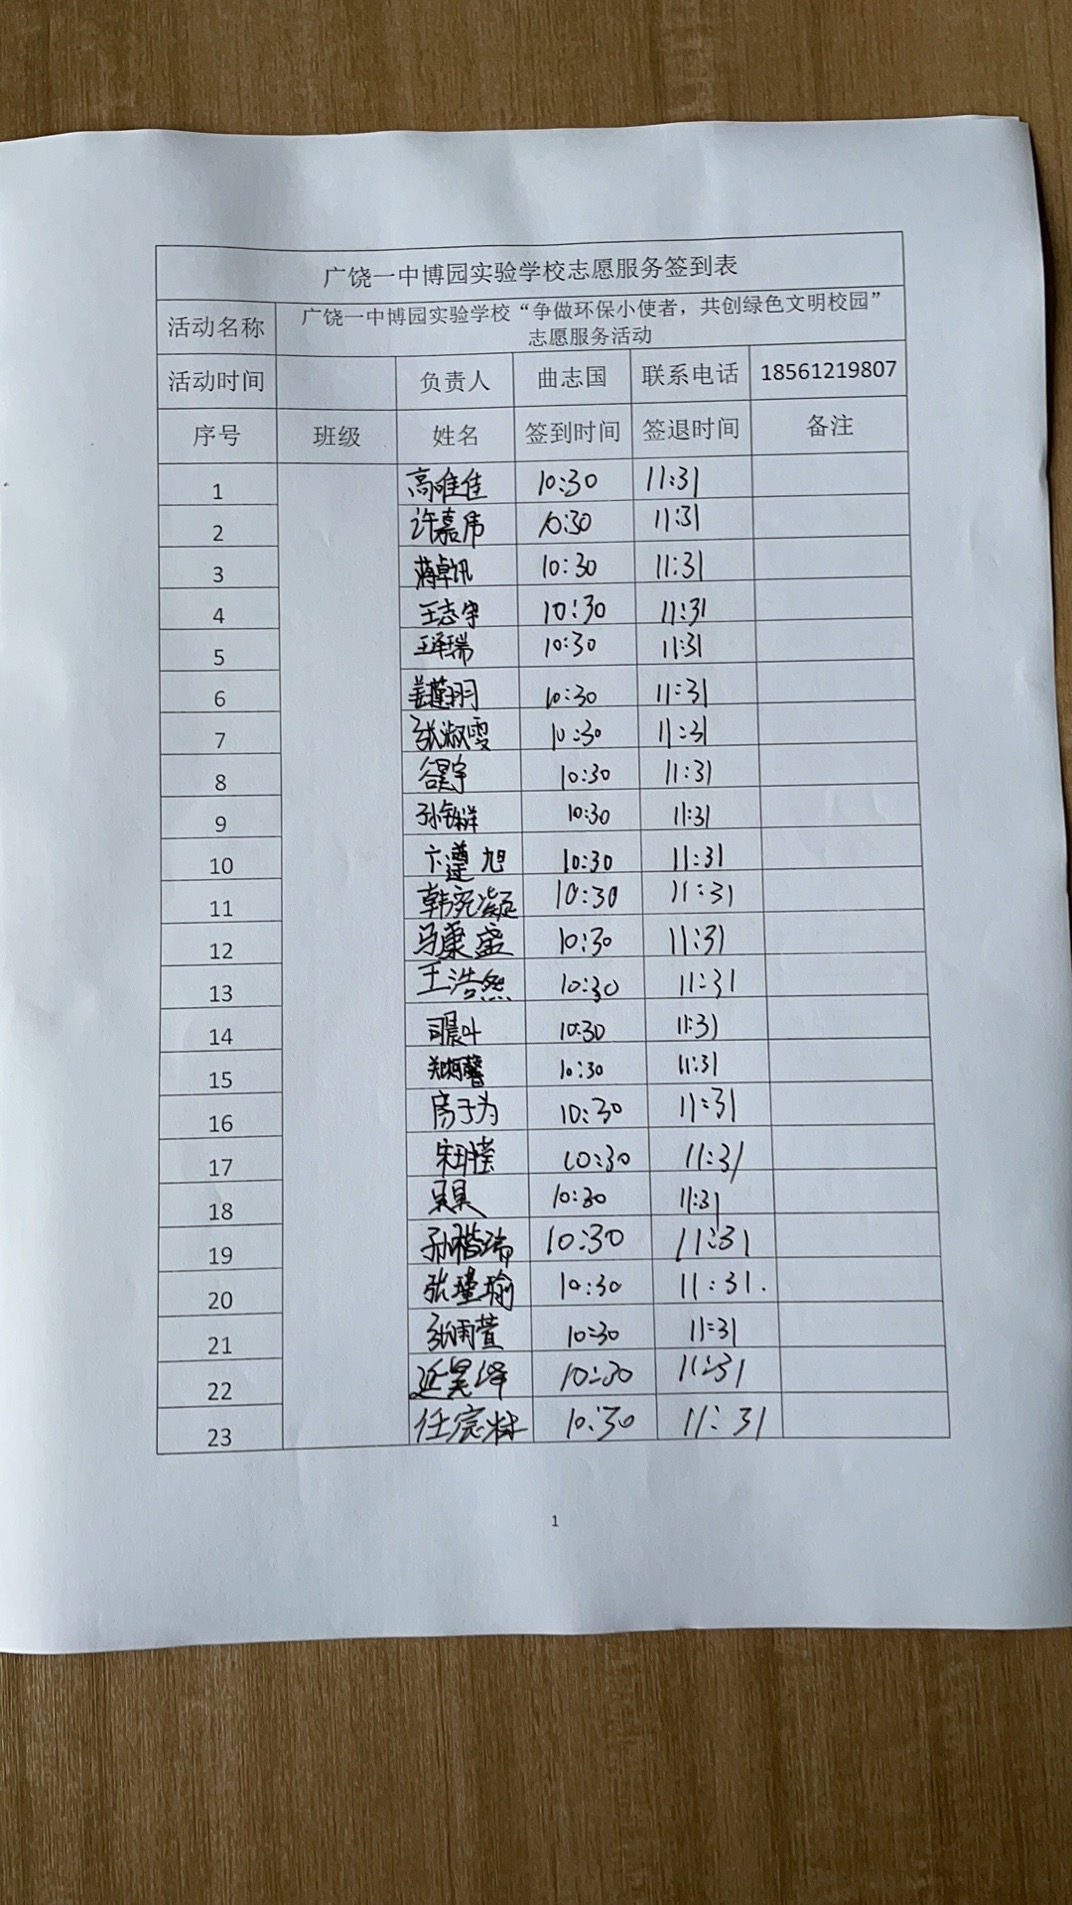 广饶一中博园实验学校志愿服务签到表
活动名称 广饶一中博园实验学校“争做环保小使者，共创绿色文明校园”
志愿服务活动
活动时间 负责人 曲志国 联系电话 18561219807
序号 班级 姓名 签到时间 签退时间 备注
1 高唯佳 10:30 11:31
2 许嘉伟 10:30 11:31
3 蒋卓讯 10:30 11:31
4 王志宇 10:30 11:31
5 王泽瑞 10:30 11:31
6 10:30 11:31
7 张淑雯 10:30 11:31
8 10:30 11:31
9 10:30 11:31
10 卞遵旭 10:30 11:31
11 韩宛凝 10:30 11:31
12 马康盛 10:30 11:31
13 王浩然 10:30 11:31
14 司晨叶 10:30 11:31
15 郑柯馨 10:30 11:31
16 房子为 10:30 11:31
17 10:30 11:31
18 吴昊 10:30 11:31
19 孙楷瑞 10:30 11:31
20 张瑾瑜 10:30 11:31.
21 张雨萱 10:30 11:31
22 延昊泽 10:30 11:31
23 任宸林 10:30 11:31
1